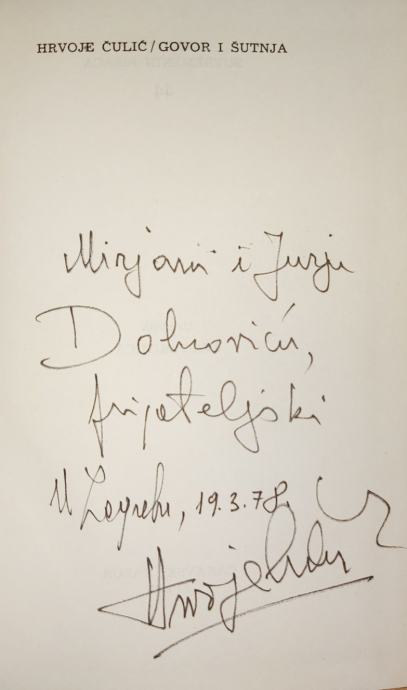 HRVOJE ČULIĆ/GOVOR I ŠUTNJA
Mirjani i Jurju
Dobroviću,
prijateljski
U Zagrebu, 19.3.78.
Hrvoje Čulić